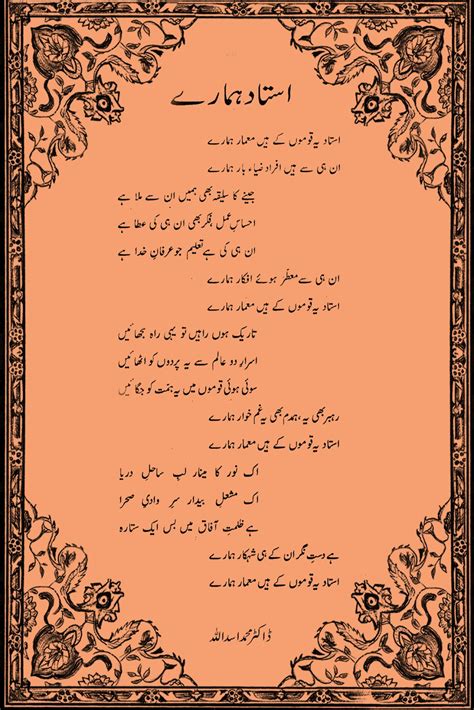 استاد ہمارے
استاد یہ قوموں کے ہیں معمار ہمارے
ان ہی سے ہیں افراد ضیاء بار ہمارے
جینے کا سلیقہ بھی ہمیں ان سے ملا ہے
احساسِ عمل، فکر بھی ان ہی کی عطا ہے
ان ہی کی ہے تعلیم جو عرفانِ خدا ہے
ان ہی سے معطّر ہوئے افکار ہمارے
استاد یہ قوموں کے ہیں معمار ہمارے
تاریک ہوں راہیں تو یہی راہ سجھائیں
اسرارِ دو عالم سے یہ پردوں کو اٹھائیں
سوئی ہوئی قوموں میں یہ ہمت کو جگائیں
رہبر بھی یہ، ہمدم بھی یہ غم خوار ہمارے
استاد یہ قوموں کے ہیں معمار ہمارے
اک نور کا مینار لبِ ساحلِ دریا
اک مشعلِ بیدار سرِ وادیِ صحرا
ہے ظلمتِ آفاق میں بس ایک ستارہ
ہے دستِ نگراں کے ہی شہکار ہمارے
استاد یہ قوموں کے ہیں معمار ہمارے
ڈاکٹر محمد اسداللہ